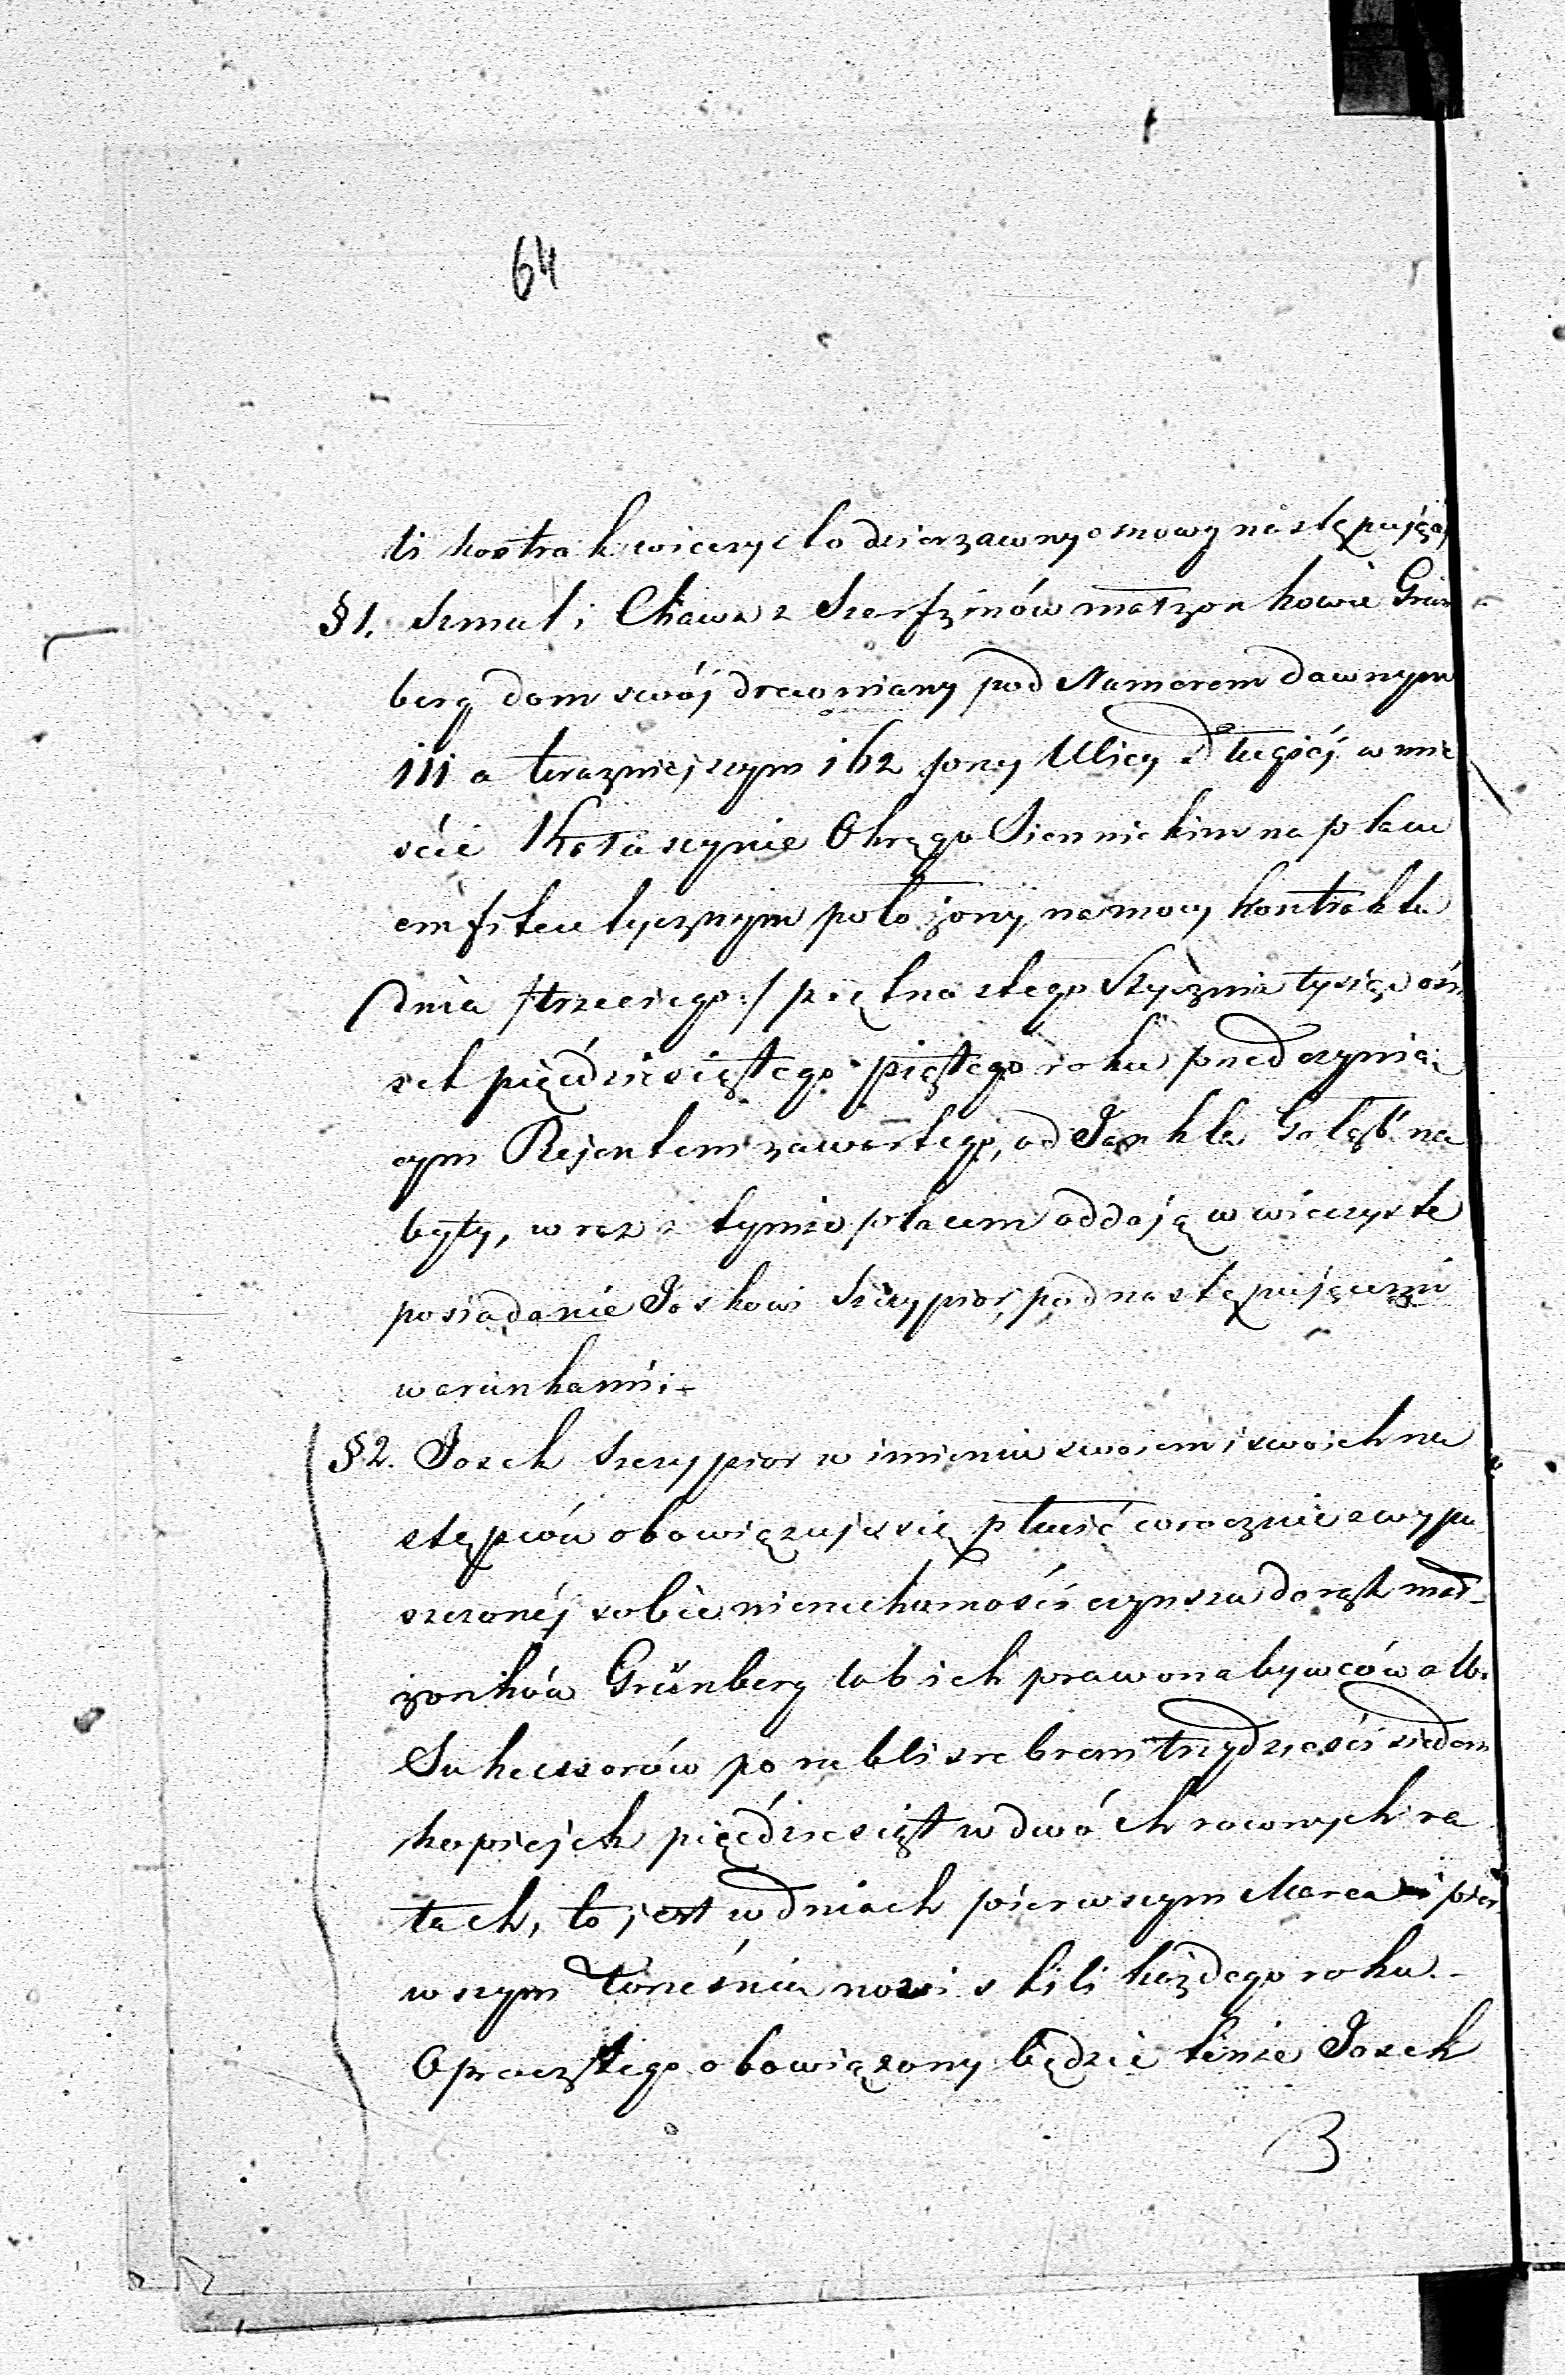 64
li kontrakt wieczysto dzierżawny osnowy następującéj
§ 1. Szmul i Chawa z Szerfzinów małżonkowie Grün
berg dom swój drewniany pod Numerem dawnym
111 a teraźniejszym 162 przy Ulicy Długiéj w mie
ście Kołaczynie Okręgu Siennickim na placu
emfiteutycznym położony, na mocy kontraktu
dnia /trzeciego:/ piętnastego Stycznia tysiąc ośm
set pięćdziesiątego piątego roku przed czynią
cym Rejentem zawartego, od Jankla Gołąb na
byty, wraz z tymże placem oddają w wieczyste
posiadanie Joskowi Szczypior, pod następującemi
warunkami:-
§ 2. Josek Szczypior w imieniu swoiem i swoich na
stępców obowiązuje się płacić corocznie z wypu
szczonéj sobie nieruchomości czynszu do rąk mał-
żonków Grünberg lub ich prawonabywców albo
Sukcessorów po rubli srebrem trzydzieści siedem
kopiejek pięćdziesiąt w dwóch równych ra
tach, to jest w dniach pierwszym Marca i pier
wszym Września nowi stili każdego roku.-
Oprócz tego obowiązany będzie tenże Josek
3